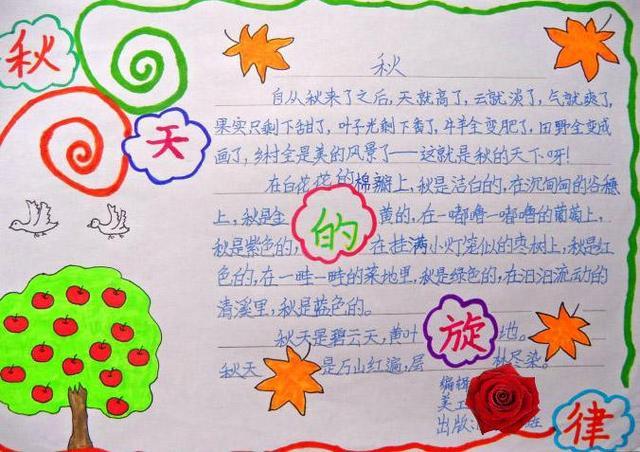 秋
天
的
旋
律
秋
自从秋来了之后,天就高了,云就淡了,气就爽了,
果实只剩下甜了,叶子光剩下香了,牛羊全变肥了,田野全变成
画了,乡村全是美的风景了——这就是秋的天下呀!
在白花花的棉瓣上,秋是洁白的,在沉甸甸的谷穗
上,秋是金黄的,在一嘟噜一嘟噜的葡萄上,
秋是紫色的,在挂满小灯笼似的枣树上,秋是红
色的,在一畦一畦的菜地里,秋是绿色的,在汩汩流动的
清溪里,秋是蓝色的。
秋天是碧云天,黄叶地。
秋天是万山红遍,层林尽染。
编辑
美工
出版:班